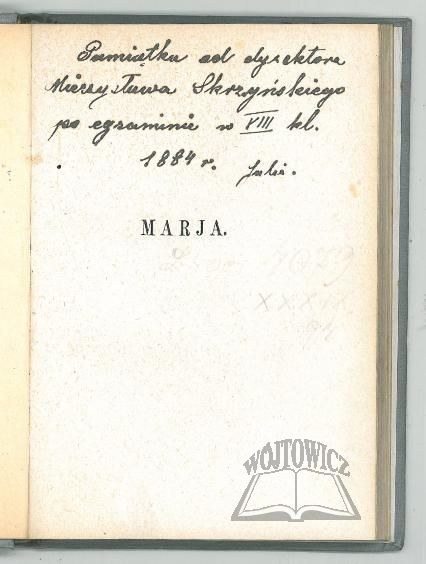 Pamiątka od dyrektora
Mieczysława Skrzyńskiego
po egzaminie w VIII kl.
1884 r. Julii.
MARJA.
XXXIX
WÓJTOWICZ